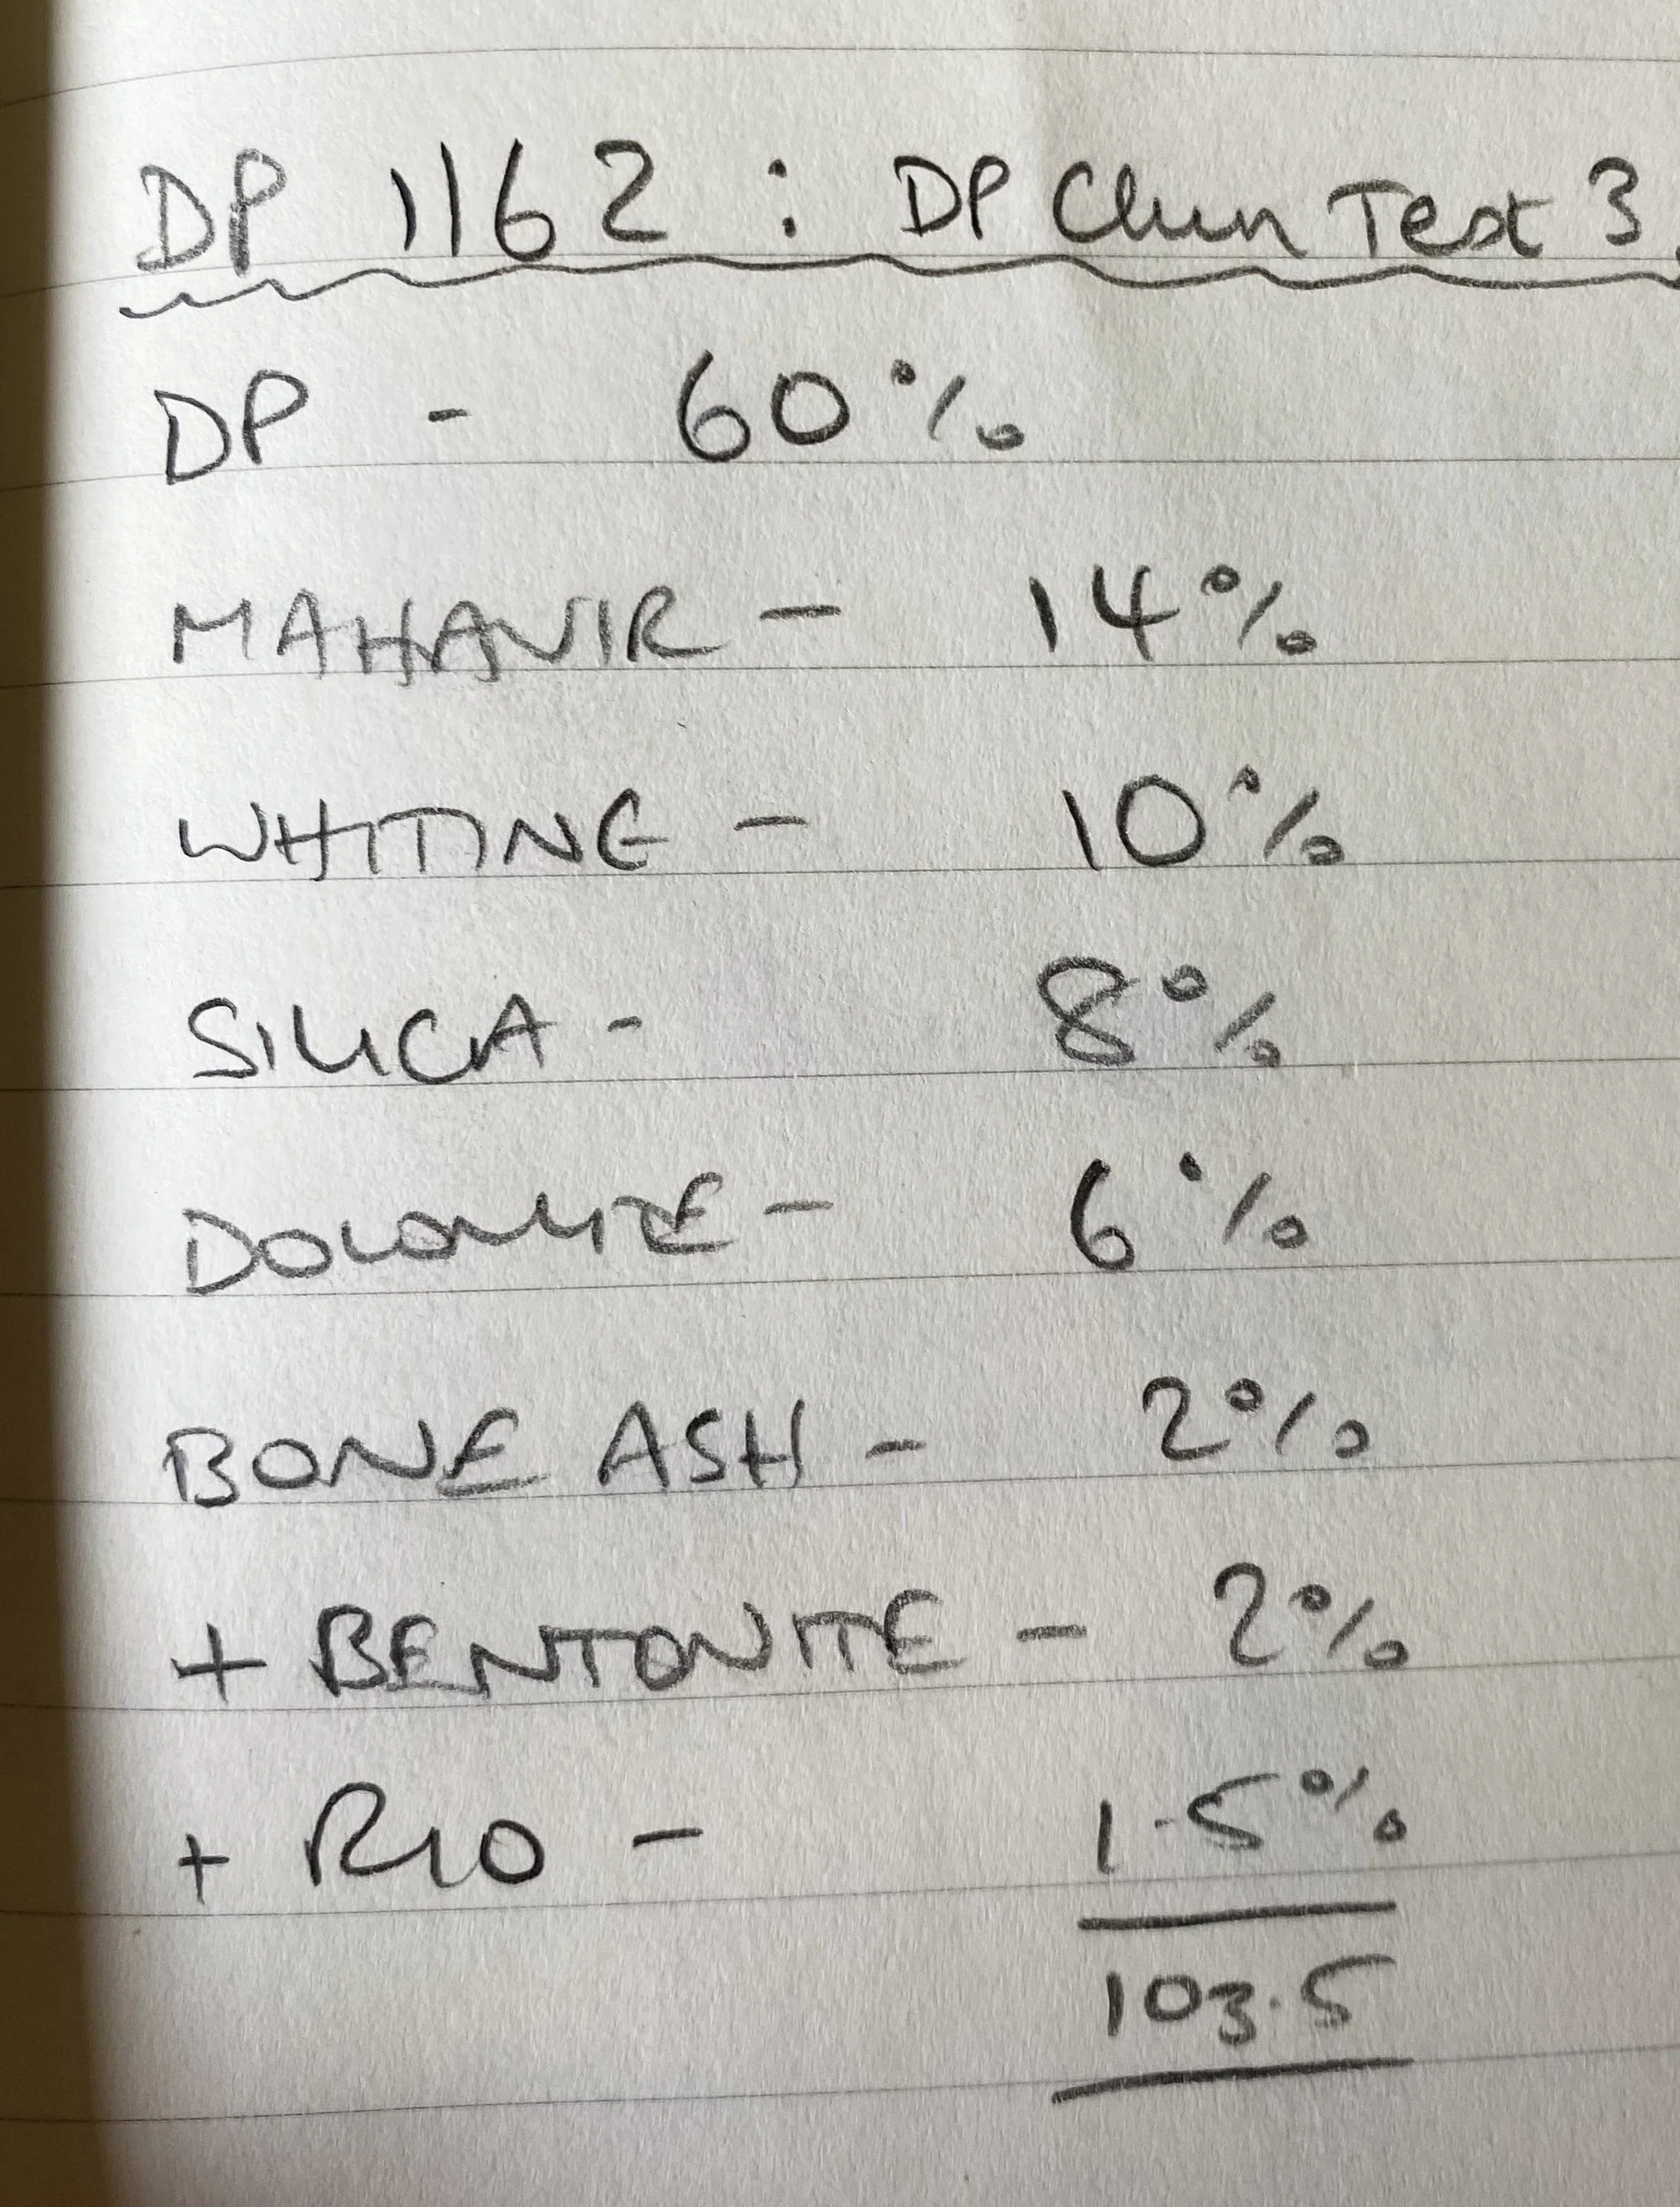 DP 1162 : DP Chun Test 3
DP - 60%
MAHAVIR - 14%
WHITING - 10%
SILICA - 8%
DOLOMITE - 6%
BONE ASH - 2%
+ BENTONITE - 2%
+ RIO - 1.5%
103.5